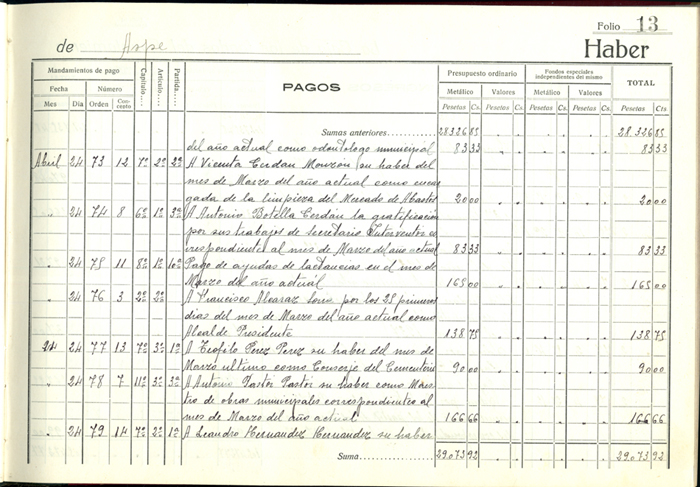 Folio 13
de Aspe Haber
Mandamientos de pago Capítulo.... Artículo.... Partida.... PAGOS Presupuesto ordinario Fondos especiales independientes del mismo TOTAL
Fecha Número Metálico Valores Metálico Valores
Mes Día Orden Concepto Pesetas Cs. Pesetas Cs. Pesetas Cs. Pesetas Cs. Pesetas Cts
Sumas anteriores 28326 85 28.326 85
del año actual como odontólogo municipal 83 33 83 33
Abril 24 73 12 7º 2º 2º A Vicenta Cerdán Monzón su haber del
mes de Marzo del año actual como encar
gada de la limpieza del Mercado de Abastos 20 00 20 00
" 24 74 8 6º 1º 3º A Antonio Botella Cerdán la gratificación
por sus trabajos de Secretario Interventor co
rrespondientes al mes de Marzo del año actual 83 33 83 33
" 24 75 11 8º 1º 10º Pago de ayudas de lactancias en el mes de
Marzo del año actual 165 00 165 00
" 24 76 3 2º 2º A Francisco Alcaraz Soria por los 25 primeros
dias del mes de Marzo del año actual como
Alcalde Presidente 138 75 138 75
24 77 13 7º 3º 1º A Teofilo Perez Perez su haber del mes de
Marzo ultimo como Conserje del Cementerio 90 00 90 00
" 24 78 7 11º 3º 3º A Antonio Pastor Pastor su haber como Maes
tro de obras municipales correspondientes al
mes de Marzo del año actual 166 66 166 66
" 24 79 14 7º 2º 1º A Leandro Hernandez Hernandez su haber
Suma 29.073 92 29.073 92